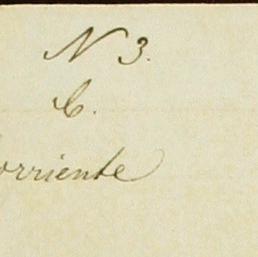 N 3.
C.
orriente